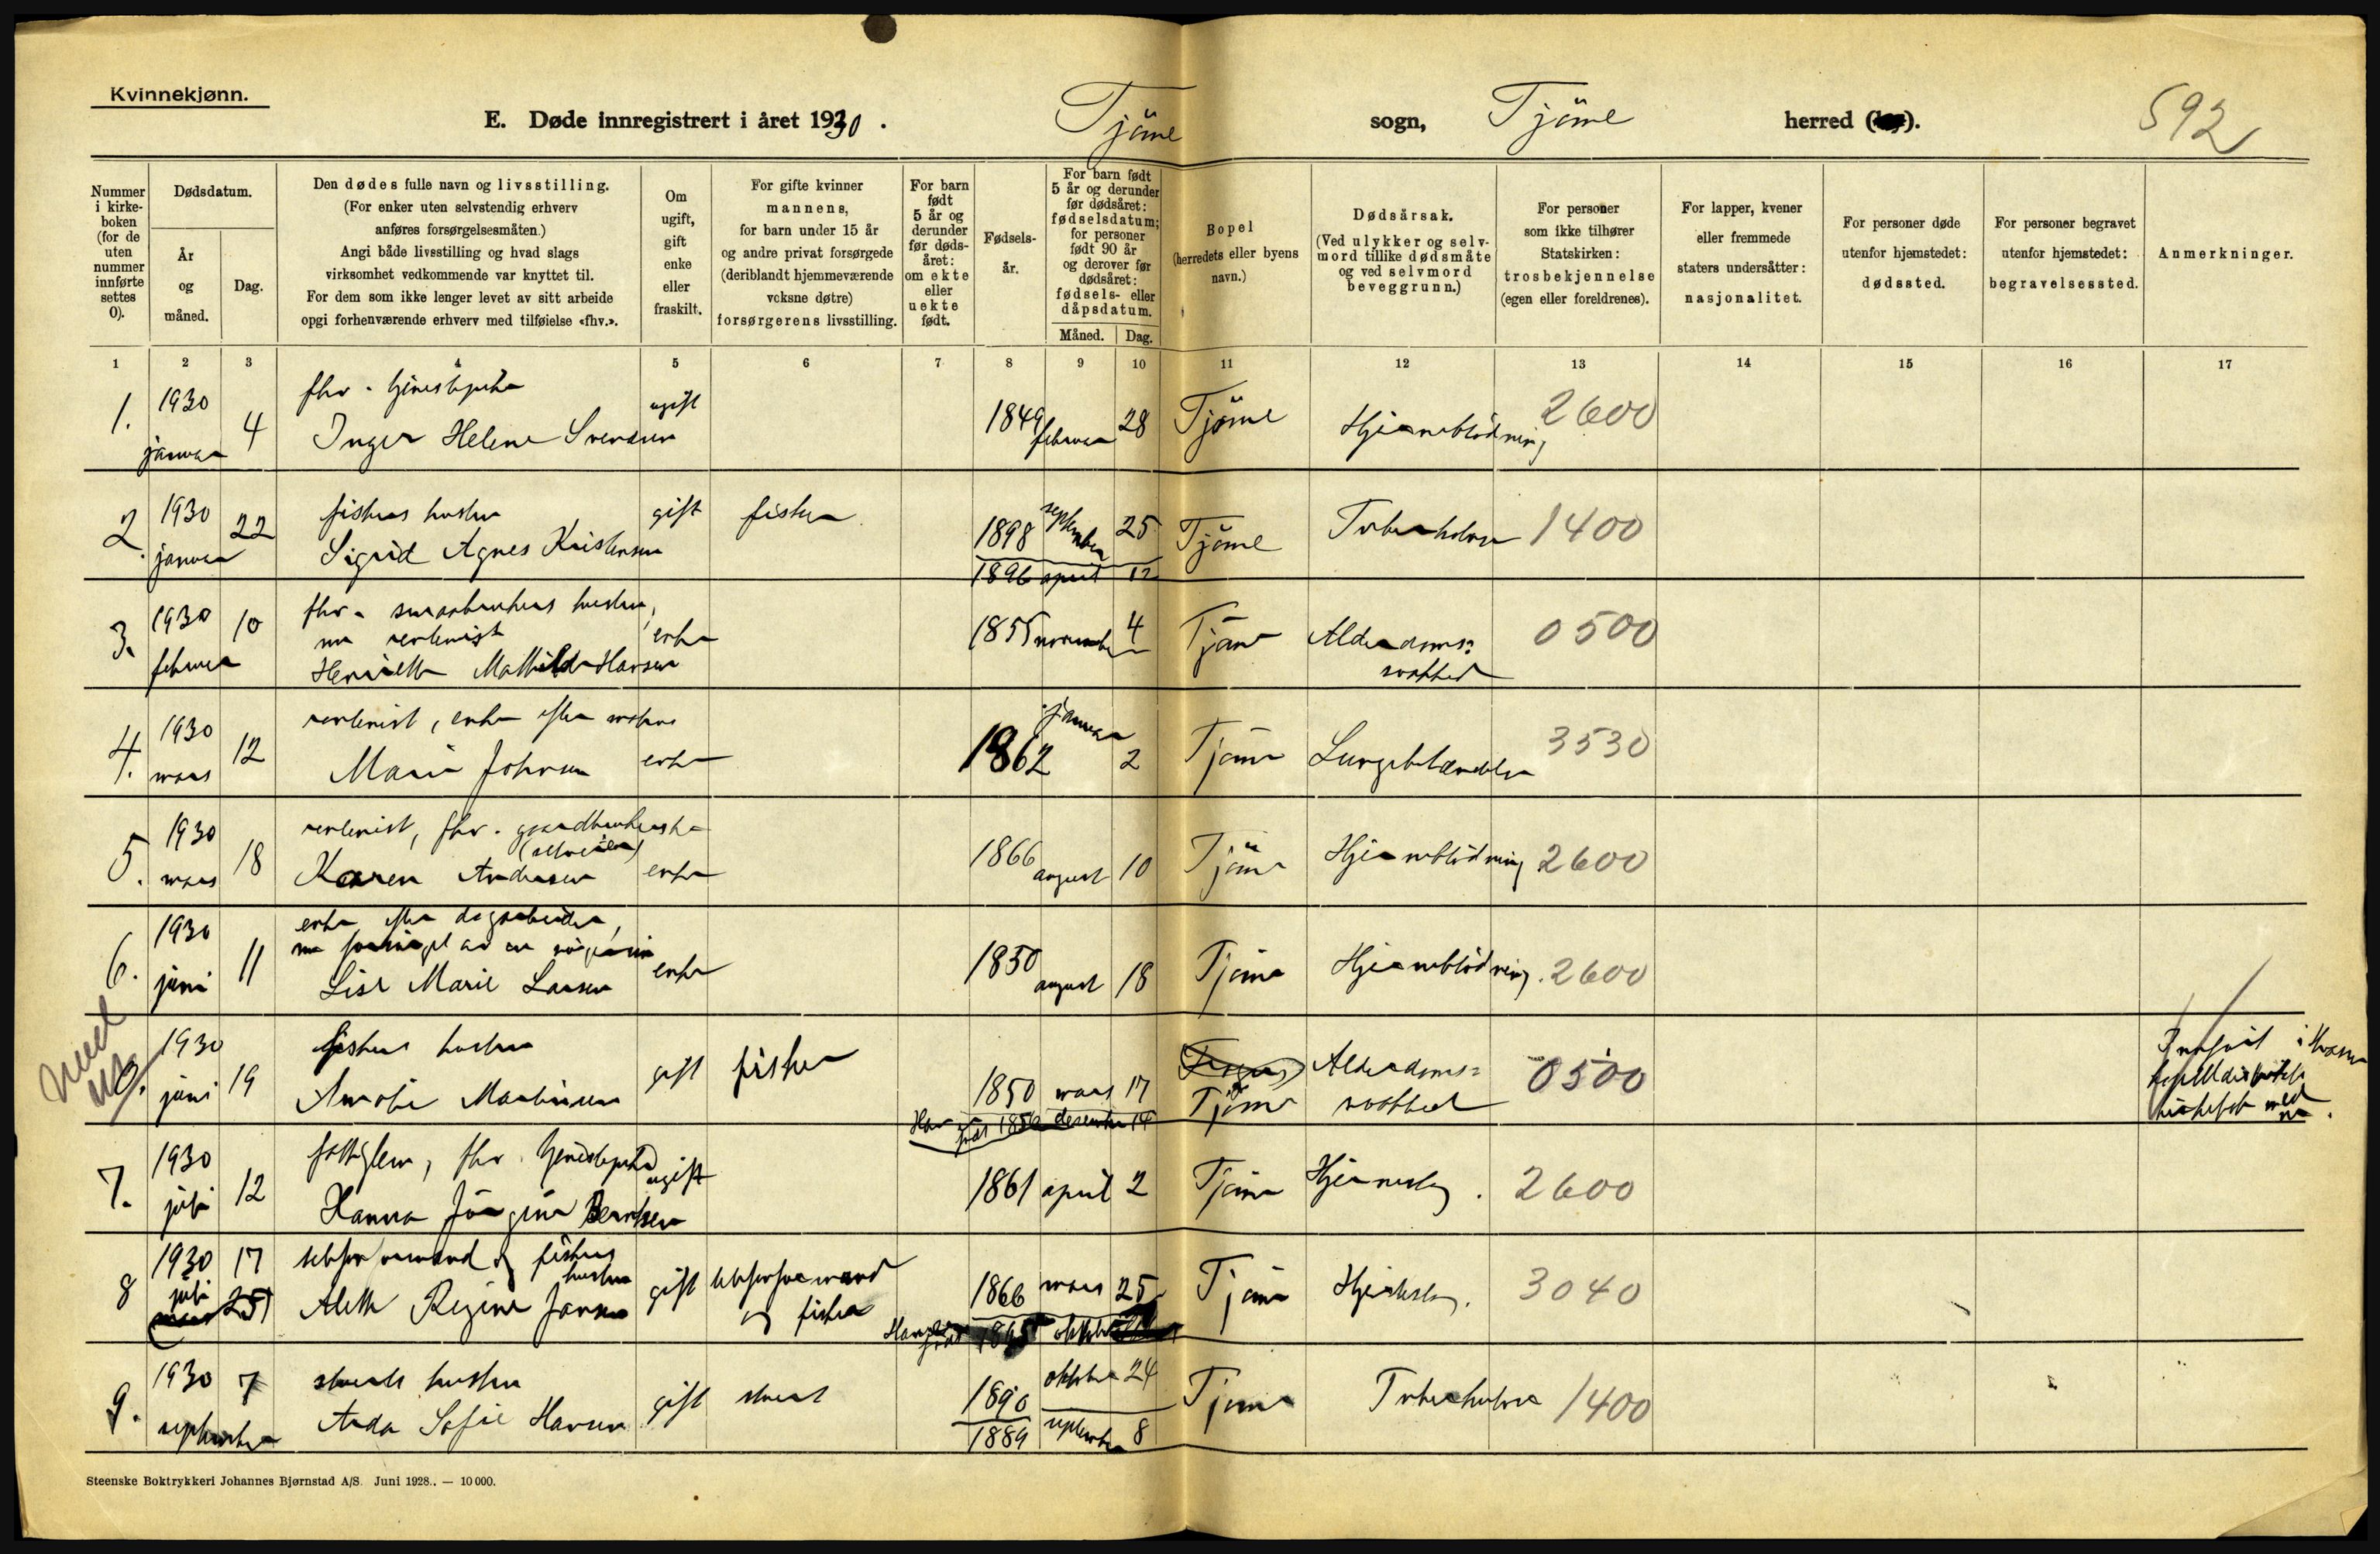 Kvinnekjønn.
E. Døde innregistrert i året 1930. Tjöme sogn, Tjöme herred ( ).
592
Nummer i kirkeboken (for de uten nummer innførte settes 0).
Dødsdatum.
År og måned.
Dag.
Den dødes fulle navn og livsstilling.
(For enker uten selvstendig erhverv
anføres forsørgelsesmåten.)
Angi både livsstilling og hvad slags
virksomhet vedkommende var knyttet til.
For dem som ikke lenger levet av sitt arbeide
opgi forhenværende erhverv med tilføielse «fhv.».
Om ugift, gift enke eller fraskilt.
For gifte kvinner
mannens,
for barn under 15 år
og andre privat forsørgede
(deriblandt hjemmeværende
voksne døtre)
forsørgerens livsstilling.
For barn født 5 år og derunder før dødsåret: om ekte eller uekte født.
Fødselsår.
For barn født
5 år og derunder
før dødsåret:
fødselsdatum;
for personer
født 90 år
og derover før
dødsåret:
fødsels- eller
dåpsdatum.
Måned. Dag.
Bopel
(herredets eller byens
navn.)
Dødsårsak.
(Ved ulykker og selvmord tillike dødsmåte
og ved selvmord
beveggrunn.)
For personer
som ikke tilhører
Statskirken:
trosbekjennelse
(egen eller foreldrenes).
For lapper, kvener
eller fremmede
staters undersåtter:
nasjonalitet.
For personer døde
utenfor hjemstedet:
dødssted.
For personer begravet
utenfor hjemstedet:
begravelsessted.
Anmerkninger.
1 2 3 4 5 6 7 8 9 10 11 12 13 14 15 16 17
1. 1930 januar 4 fhv. tjenestepike
Inger Helene Svendsen ugift 1849 februar 28 Tjöme Hjerneblödning 2600
2. 1930 januar 22 fiskers hustru
Sigrid Agnes Kristensen gift fisker 1898 september 25 Tjöme Tuberkulose 1400
1896 april 12
3. 1930 februar 10 fhv. smaabrukers hustru,
nu rentenist
Henriette Mathilde Hansen enke 1855 november 4 Tjöme Alderdoms-
svakhed 0500
4. 1930 mars 12 rentenist, enke efter
Marie Johnsen enke 1862 januar 2 Tjöme Lungebetændelse 3530
5. 1930 mars 18 rentenist, fhv. gaardbrukerske
(selveier)
Karen Andersen enke 1866 august 10 Tjöme Hjerneblödning 2600
6. 1930 juni 11 enke efter dagarbeider,
nu forsörget av en
Lise Marie Larsen enke 1850 august 18 Tjöme Hjerneblödning. 2600
med
0. 1930 juni 19 fiskers hustru
Martinsen gift fisker 1850 mars 17 Tjöme Alderdoms-
svakhed 0500
1856 desember 14
7. 1930 juli 12 fattiglem, fhv. tjenestepike
Hanna Jörgine Berntsen ugift 1861 april 2 Tjöme Hjerneslag. 2600
8 1930 juli 17 og fiskers
hustru
Alette Regine Jansen gift og fisker 1866 mars 25 Tjöme Hjerteslag. 3040
1865
9. 1930 september 7 stuerts hustru
Anda Sofie Hansen gift stuert 1890 oktober 24 Tjöme Tuberkulose 1400
1889 september 8
Steenske Boktrykkeri Johannes Bjørnstad A/S. Juni 1928.. — 10 000.